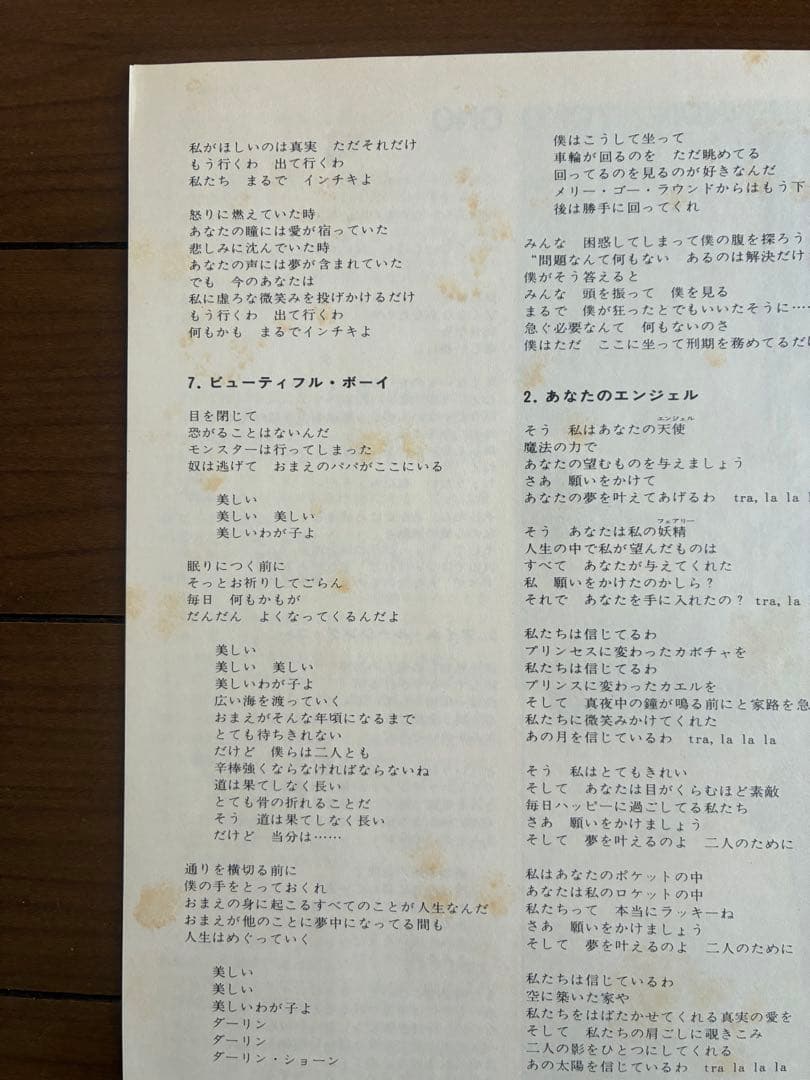 私がほしいのは真実 ただそれだけ
もう行くわ 出て行くわ
私たち まるで インチキよ
怒りに燃えていた時
あなたの瞳には愛が宿っていた
悲しみに沈んでいた時
あなたの声には夢が含まれていた
でも 今のあなたは
私に虚ろな微笑みを投げかけるだけ
もう行くわ 出て行くわ
何もかも まるでインチキよ
7. ビューティフル・ボーイ
目を閉じて
恐がることはないんだ
モンスターは行ってしまった
奴は逃げて おまえのパパがここにいる
美しい
美しい 美しい
美しいわが子よ
眠りにつく前に
そっとお祈りしてごらん
毎日 何もかもが
だんだん よくなってくるんだよ
美しい
美しい 美しい
美しいわが子よ
広い海を渡っていく
おまえがそんな年頃になるまで
とても待ちきれない
だけど 僕らは二人とも
辛棒強くならなければならないね
道は果てしなく長い
とても骨の折れることだ
そう 道は果てしなく長い
だけど 当分は……
通りを横切る前に
僕の手をとっておくれ
おまえの身に起こるすべてのことが人生なんだ
おまえが他のことに夢中になってる間も
人生はめぐっていく
美しい
美しい
美しいわが子よ
ダーリン
ダーリン
ダーリン・ショーン
僕はこうして坐って
車輪が回るのを ただ眺めてる
回ってるのを見るのが好きなんだ
メリー・ゴー・ラウンドからはもう下
後は勝手に回ってくれ
みんな 困惑してしまって僕の腹を探ろう
“問題なんて何もない あるのは解決だけ
僕がそう答えると
みんな 頭を振って 僕を見る
まるで 僕が狂ったとでもいいたそうに……
急ぐ必要なんて 何もないのさ
僕はただ ここに坐って刑期を務めてるだけ
2. あなたのエンジェル
エンジェル
そう 私はあなたの天使
魔法の力で
あなたの望むものを与えましょう
さあ 願いをかけて
あなたの夢を叶えてあげるわ tra, la la
フェアリー
そう あなたは私の妖精
人生の中で私が望んだものは
すべて あなたが与えてくれた
私 願いをかけたのかしら？
それで あなたを手に入れたの？ tra, la
私たちは信じてるわ
プリンセスに変わったカボチャを
私たちは信じてるわ
プリンスに変わったカエルを
そして 真夜中の鐘が鳴る前にと家路を急
私たちに微笑みかけてくれた
あの月を信じているわ tra, la la la
そう 私はとてもきれい
そして あなたは目がくらむほど素敵
毎日ハッピーに過ごしてる私たち
さあ 願いをかけましょう
そして 夢を叶えるのよ 二人のために
私はあなたのポケットの中
あなたは私のロケットの中
私たちって 本当にラッキーね
さあ 願いをかけましょう
そして 夢を叶えるのよ 二人のために
私たちは信じているわ
空に築いた家や
私たちをはばたかせてくれる真実の愛を
そして 私たちの肩ごしに覗きこみ
二人の影をひとつにしてくれる
あの太陽を信じているわ tra la la la